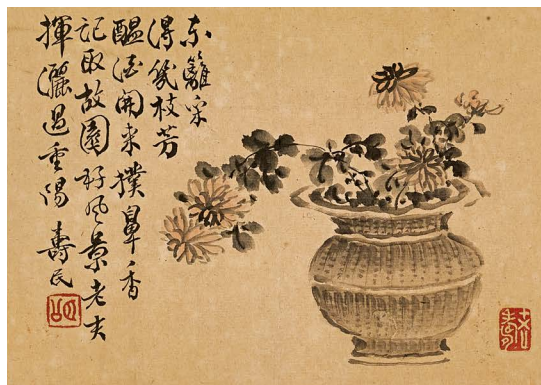 東籬采
得幾枝芳
醖酒開来撲鼻香
記取故園好風景老夫
揮灑過重陽 壽民